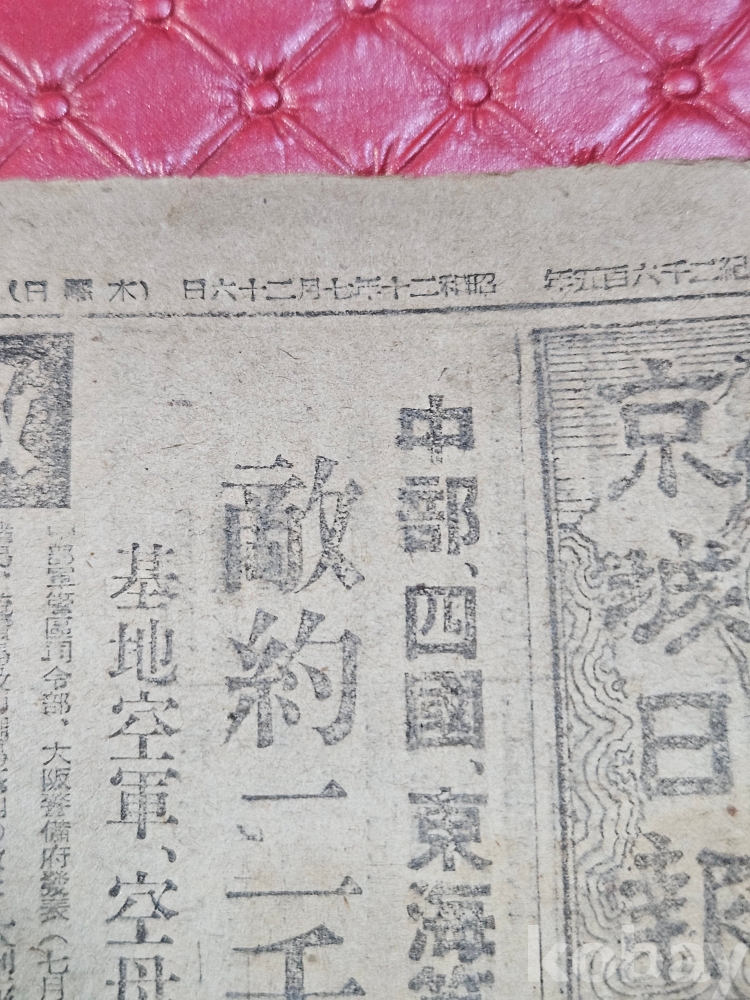 紀二千六百五年 昭和二十年七月二十六日 (木曜日)
京城日報
中部、四國、東海
敵約一、二千
基地空軍、空母
軍管區司令部、大阪警備府發表（七月
kobay